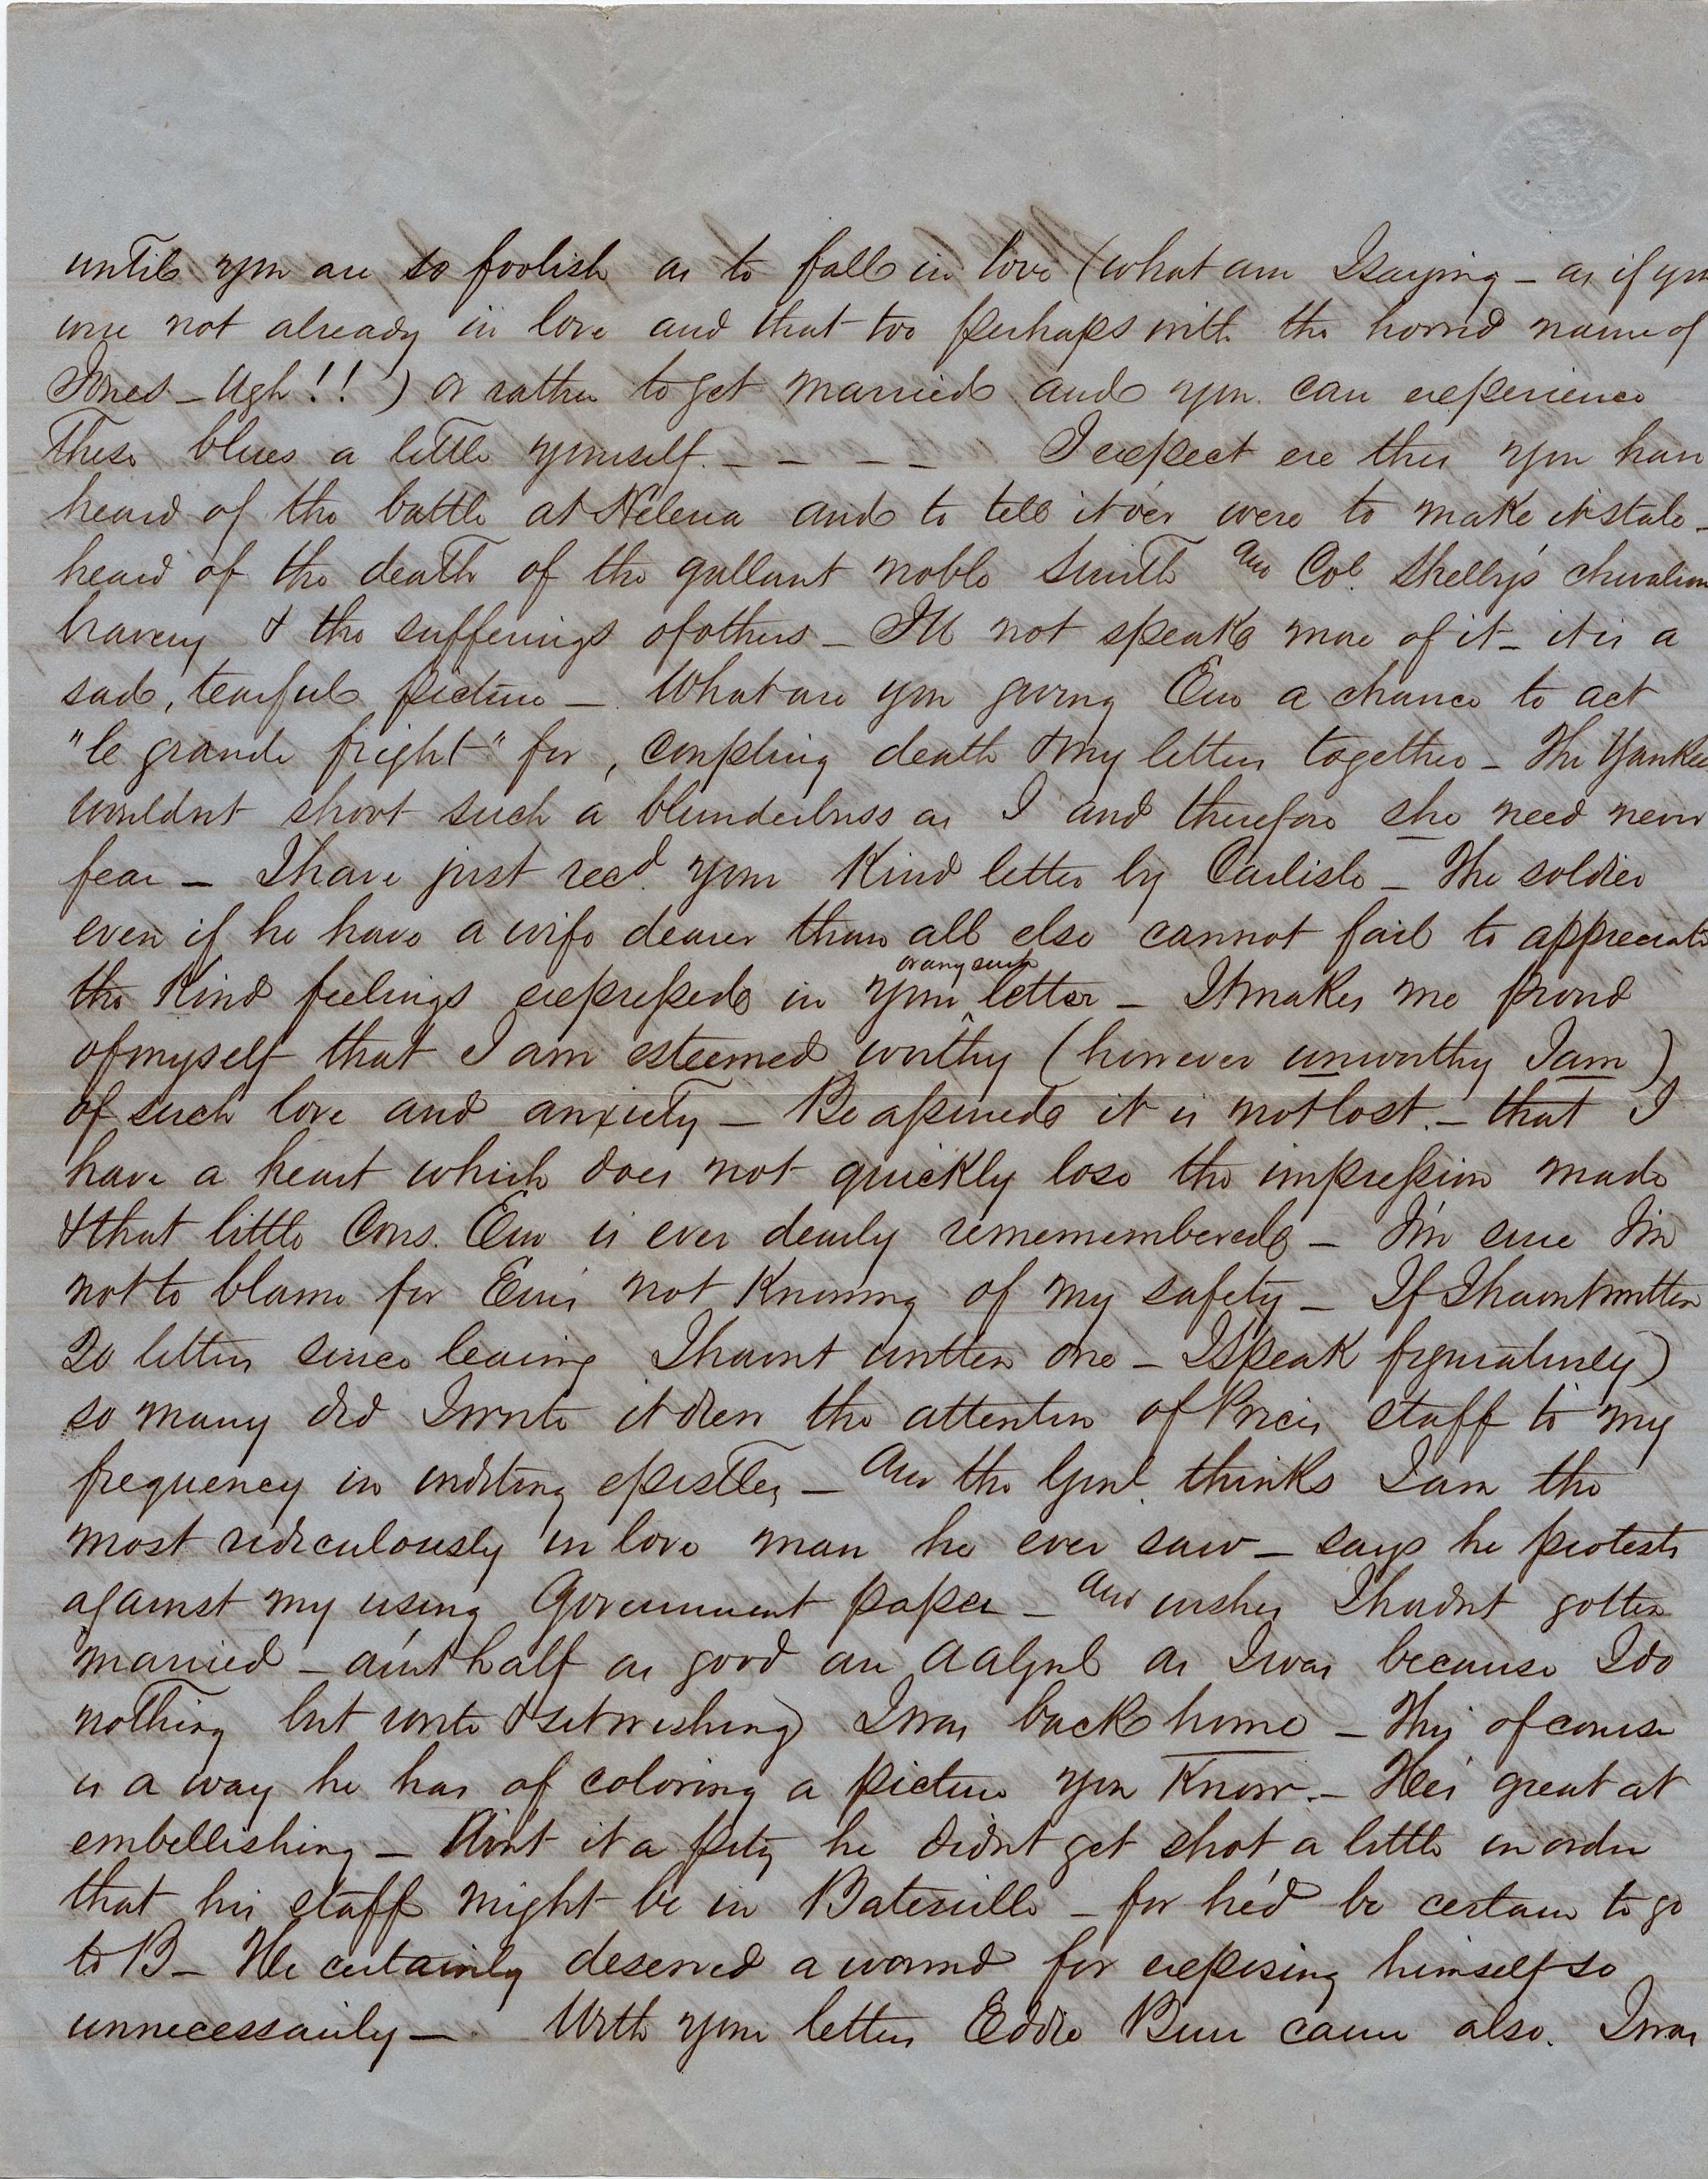 until you are so foolish as to fall in love (what am I saying – as if you
were not already in love and that too perhaps with the horrid name of
Jones – Ugh!!) or rather to get married and you can experience
these blues a little yourself. – – – – I expect ere this you have
heard of the battle at Helena and to tell it o'er were to make it stale –
heard of the death of the gallant noble Smith and Col. Shelby's chivalrous
bravery & the sufferings of others – I'll not speak more of it – it is a
sad, tearful picture – What are you giving Em a chance to act
"le grande fright" for, coupling death & my letters together – The Yankees
wouldnt shoot such a blunderbuss as I and therefore she need never
fear – I have just recd. your kind letter by Carlisle – The soldier
even if he have a wife dearer than all else cannot fail to appreciate
the kind feelings expressed in your
or any such
letter – It makes me proud
of myself that I am esteemed worthy (however unworthy I am)
of such love and anxiety – Be assured it is not lost. – that I
have a heart which does not quickly lose the impression made
& that little Cous. Em is ever dearly rememembered – I'm sure I'm
not to blame for Em's not knowing of my safety – If I havnt written
20 letters since leaving I havnt written one – I speak figuratively)
so many did I write it drew the attention of Price's staff to my
frequency in inditing epistles – And the Genl. thinks I am the
most ridiculously in love man he ever saw – says he protests
against my using Government paper – and wishes I hadnt gotten
married – ain't half as good an AAGnl as I was because I do
nothing but write & sit wishing I was back home – This of course
is a way he has of coloring a picture you know. – He's great at
embellishing – Aint it a pity he didnt get shot a little in order
that his staff might be in Batesville – for he'd be certain to go
to B – He certainly deserved a wound for exposing himself so
unnecessarily – With your letter Eddie Burr came also. I was